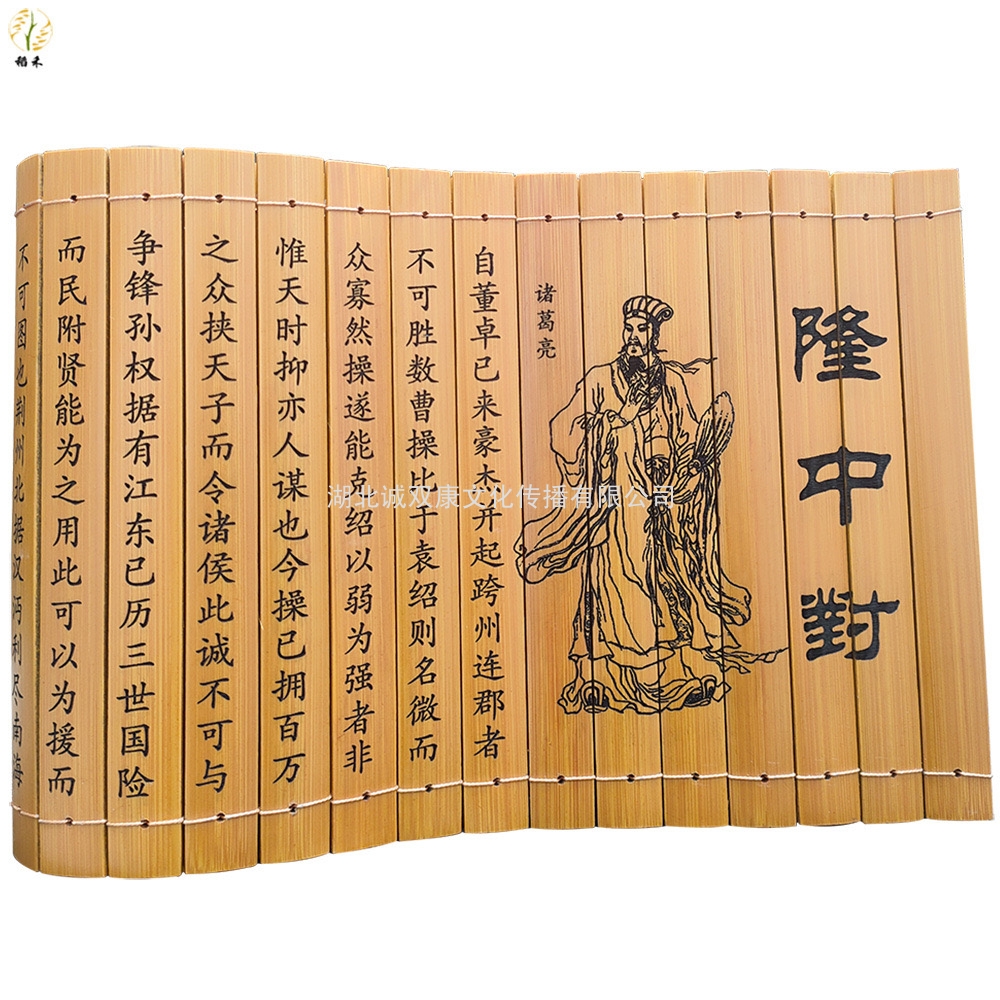 稻禾
隆中對
诸葛亮
自董卓已来豪杰并起跨州连郡者
不可胜数曹操比于袁绍则名微而
众寡然操遂能克绍以弱为强者非
惟天时抑亦人谋也今操已拥百万
之众挟天子而令诸侯此诚不可与
争锋孙权据有江东已历三世国险
而民附贤能为之用此可以为援而
不可图也荆州北据汉沔利尽南海
湖北诚双康文化传播有限公司